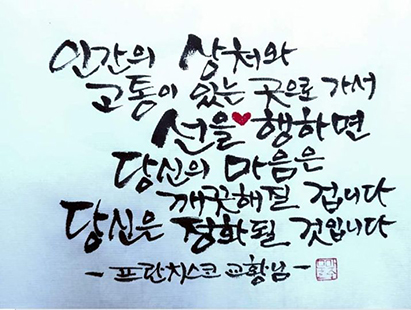 인간의 상처와
고통이 있는 곳으로 가서
선을 행하면
당신의 마음은
깨끗해질 겁니다
당신은 정화될 것입니다
- 프란치스코 교황님 -